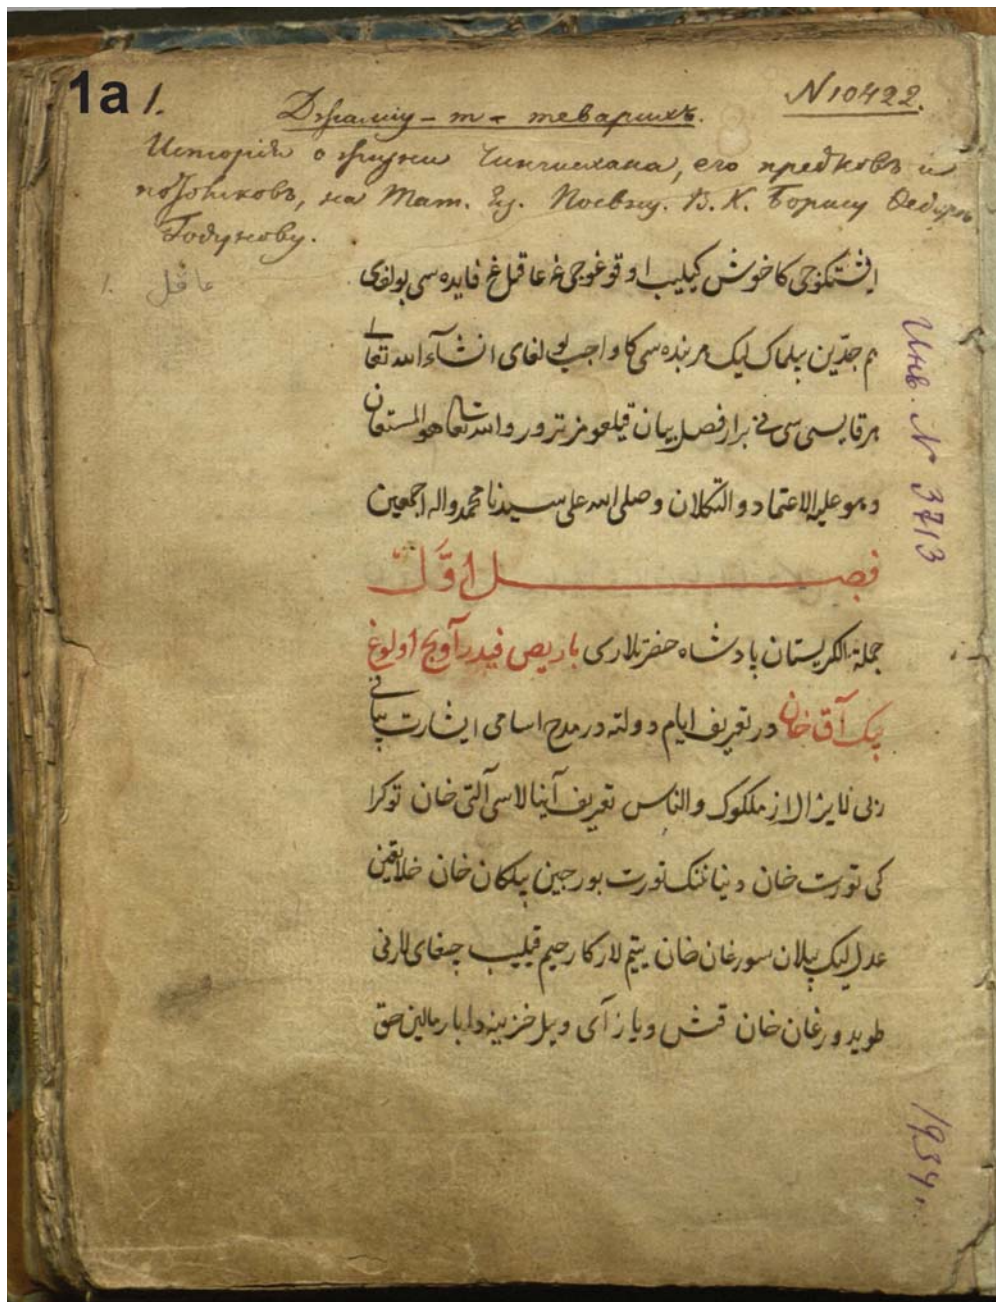 1a 1.
N10422.
Джамiу-т-теварихъ.
Исторiя о жизни Чингисхана, его предковъ и
потомковъ, на Тат. яз. Посвящ. В. К. Борису Ѳедоров
Годунову.
عاقل 1.
ایشتکوچی کا خوش کیلیب اوقوغوچی غه عاقل غ فایده سی بولغای
هم جدین بیلماک لیک هر بنده سی کا واجب بولغای انشآء الله تعالی
هر قایسی سی نی برار فصل بیان قیلغومز ترور والله تعالی هو المستعان
وهو علیه الاعتماد والتکلان وصلی الله علی سیدنا محمد واله اجمعین
فصل اول
جملة الکریستان پادشاه حضرتلاری باریص فیدرآویج اولوغ
بیک آق خان در تعریف ایام دولته در مدح اسامی ایشارت بیانی
خان توکرا
کی تورت خان دنیا ننک تورت بورجین بیلکان خان خلایقنی
عدل لیک بیلان سورغان خان یتیم لارکا رحیم قیلیب چغای لارنی
طویدورغان خان قش ویاز آی ویل خزینه دا بار مالین حق
Инв. N 3713
1934 г.